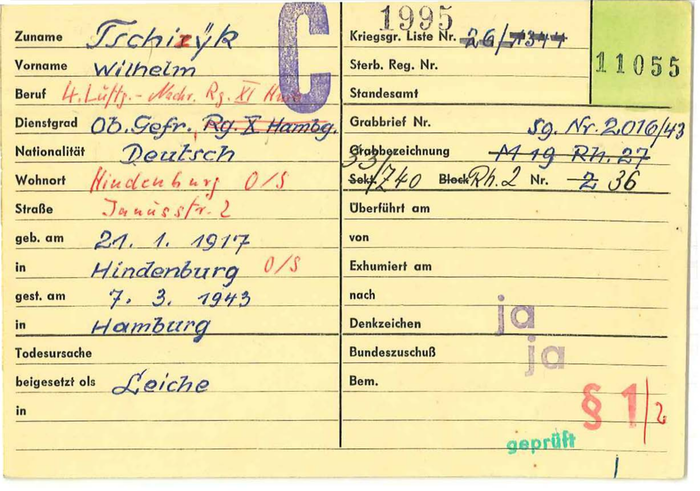 1995
C
11055
Zuname Tschirÿk
Vorname Wilhelm
Beruf 4. Luftg.- Nachr. Rg. XI
Dienstgrad Ob. Gefr. Rg. X Hambg.
Nationalität Deutsch
Wohnort Hindenburg O/S
Straße Janusstr. 2
geb. am 21. 1. 1917
in Hindenburg O/S
gest. am 7. 3. 1943
in Hamburg
Todesursache
beigesetzt als Leiche
in
Kriegsgr. Liste Nr. 26/1344
Sterb. Reg. Nr.
Standesamt
Grabbrief Nr. Sg. Nr. 2016/43
Grabbezeichnung M 19 Rh. 27
33/
Sekt. Z40 Block Rh. 2 Nr. 2 36
Überführt am
von
Exhumiert am
nach
Denkzeichen ja
Bundeszuschuß ja
Bem.
§ 1/2
geprüft